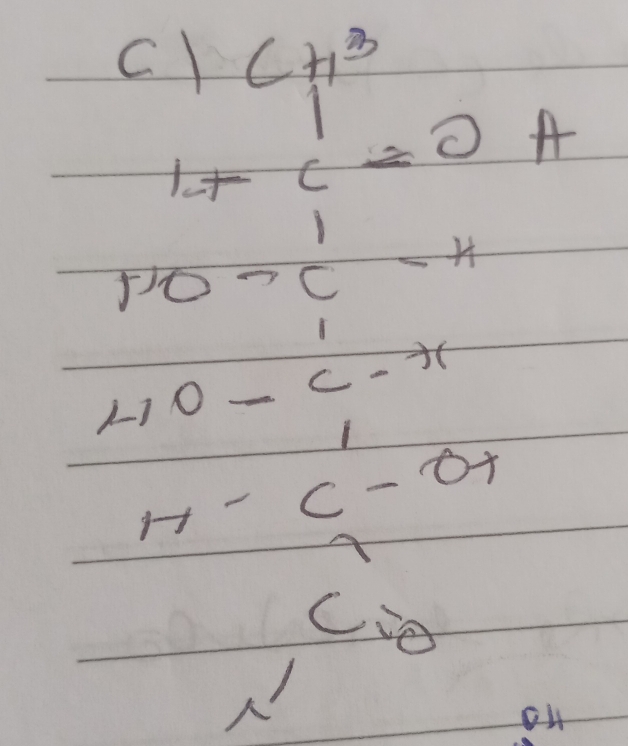 C) CH3
|
H - C - OH
|
HO - C - H
|
HO - C - H
|
H - C - OH
C=O
H
OH